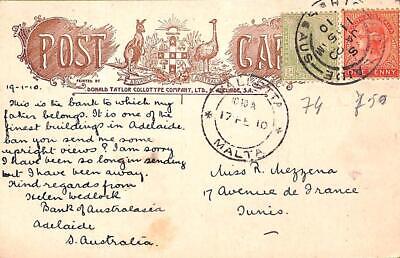 POST CARD
PRINTED BY
DONALD TAYLOR COLLOTYPE COMPANY, LTD., ADELAIDE, S.A.
19-1-10.
This is the bank to which my
father belongs. It is one of the
finest buildings in Adelaide.
Can you send me some
upright views? I am sorry
I have been so long sending
but I have been away.
Kind regards from
Helen Bedlock
Bank of Australasia
Adelaide
S. Australia.
VALLETTA
10 10 A
17 FE 10
MALTA
74
750
PENNY
Miss R. Mezzena
17 Avenue de France
Tunis.